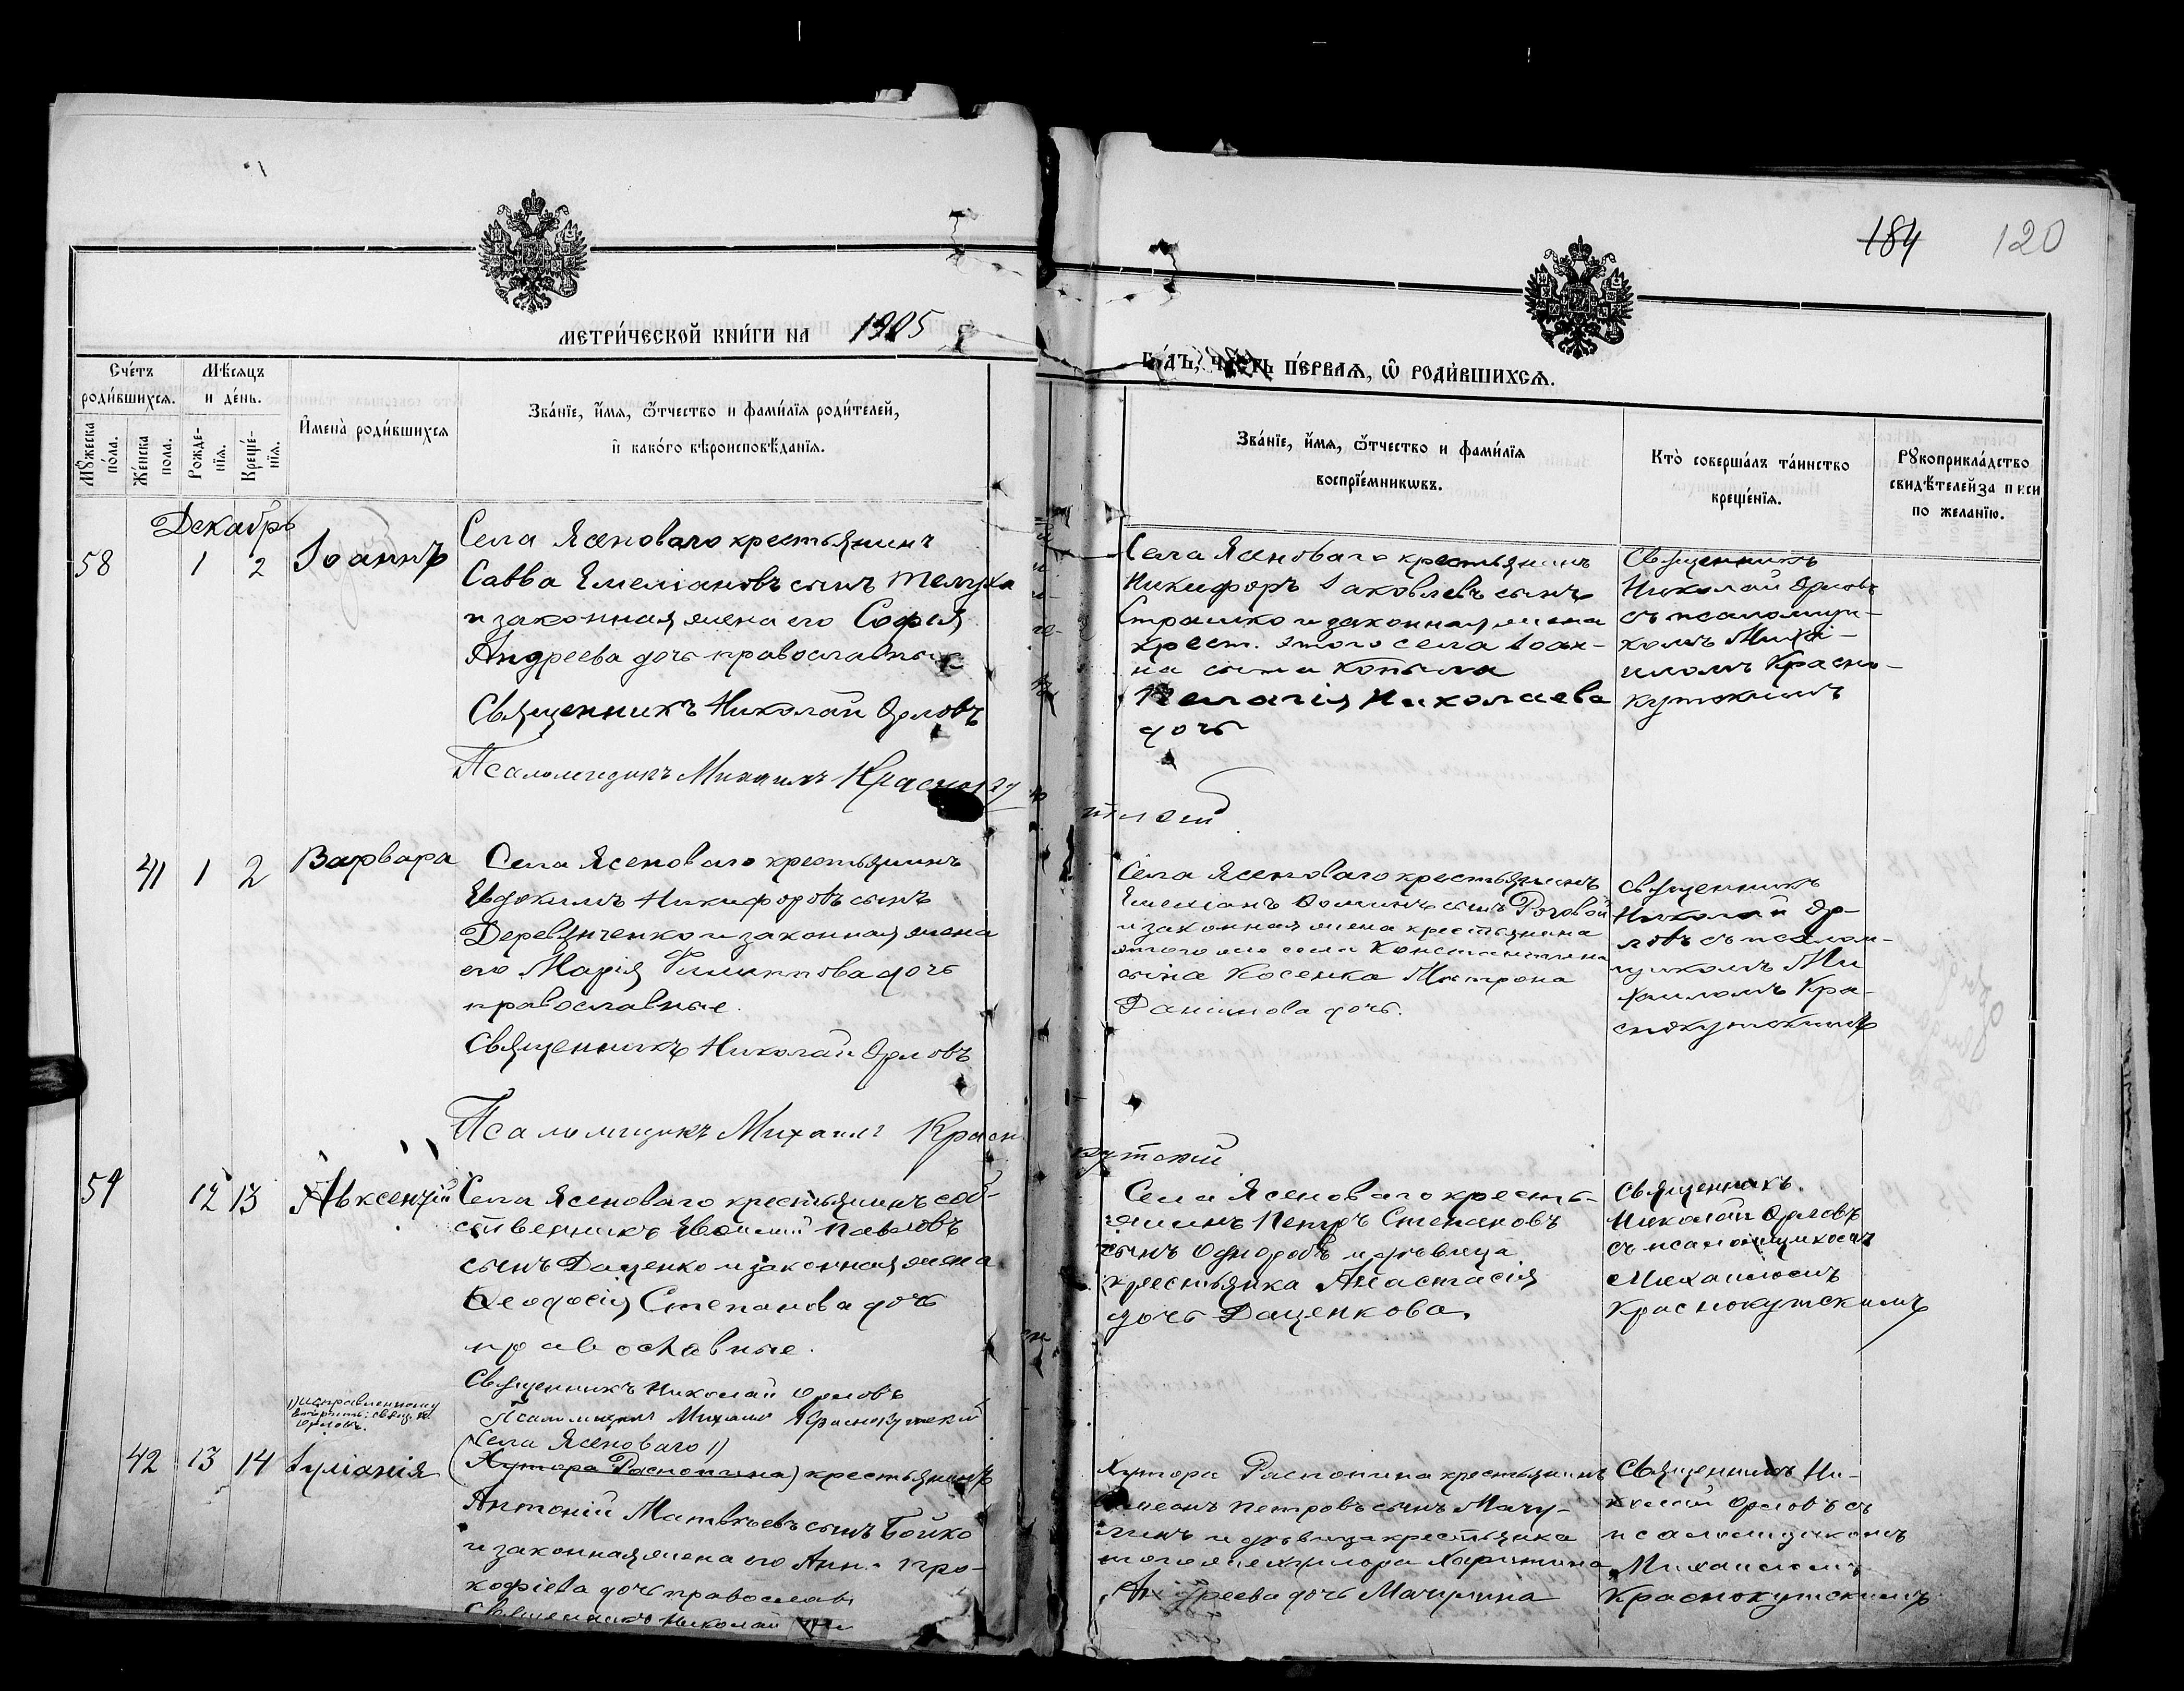 184 120
МЕТРИ́ЧЕСКОЙ КНИ́ГИ НА 1905
ГО́ДЪ, ЧА́СТЬ ПЕ́РВАЯ, Ѡ҆ РОДИ́ВШИХСЯ.
Сче́тъ роди́вшихся.
Мꙋ́жеска по́ла.
Же́нска пола.
Мѣ́сяцъ и де́нь.
Рожде́нїя.
Креще́нїя.
И҆мена̀ роди́вшихся
Зва́нїе, и҆́мя, ѻ҆́тчество и фами́лїя роди́телей,
и҆ како́го вѣроисповѣ́данїя.
Зва́нїе, и҆́мя, ѻ҆́тчество и фами́лїя
воспрїе́мникѡвъ.
Кто̀ соверша́лъ та́инство
креще́нїя.
Рꙋкоприкла́дство
свидѣ́телей за писи
по жела́нїю.
Декабрь
58 1 2 Іоаннъ
Села Ясеноваго крестьянинъ
Савва Емеліановъ сынъ Телуха
и законная жена его Софія
Андреева дочь православные
Священникъ Николай Орловъ
Псаломщикъ Михаилъ Красноку
тскій
Села Ясеноваго крестьянинъ
Никифоръ Іаковлевъ сынъ
Страшко и законная жена
крест. этого села Іоан-
на сына Копыла
Пелагія Николаева
дочь
Священникъ
Николай Орловъ
съ псаломщи-
комъ Михаи-
иломъ Красно-
кутскимъ
41 1 2 Варвара
Села Ясеноваго крестьянинъ
Евдокимъ Никифоровъ сынъ
Деревянченко и законная жена
его Марія Филиппова дочь
православные.
Священникъ Николай Орловъ
Псаломщикъ Михаилъ Красн
кутскій
Села Ясеноваго крестьянинъ
Емеліанъ Ѳоминъ сынъ Роговой
и законная жена крестьянина
этого же села Константина
сына Косенка Матрона
Даніилова дочь.
Священникъ
Николай Ор-
ловъ съ псалом-
щикомъ Ми
хаиломъ Кра-
снокутскимъ
59 12 13 Авксентій
Села Ясеноваго крестьянинъ соб-
ственникъ Евѳимій Павловъ
сынъ Даценко и законная жена
Ѳеодосія Степанова дочь
православные.
Священникъ Николай Орловъ
Псаломщикъ Михаилъ Краснокутскій
Села Ясеноваго кресть-
янинъ Петръ Степановъ
сынъ Однородъ и дѣвица
крестьянка Анастасія
дочь Даценкова.
Священникъ
Николай Орловъ
съ псаломщикомъ
Михаиломъ
Краснокутскимъ
1) Исправленному
вѣрить: свящ. Н.
Орловъ.
42 13 14 Іуліанія
Села Ясеноваго 1)
(Хутора Распопина) крестьянинъ
Антоній Матвѣевъ сынъ Бойко
и законная жена его Анна Про-
кофіева дочь православ
Священникъ Николай
Хутора Распопина крестьянинъ
Симеонъ Петровъ сынъ Мачу-
линъ и дѣвица крестьянка
того же хутора Харитина
Андреева дочь Мачулина
Священникъ Ни-
колай Орловъ съ
псаломщикомъ
Михаиломъ
Краснокутскимъ